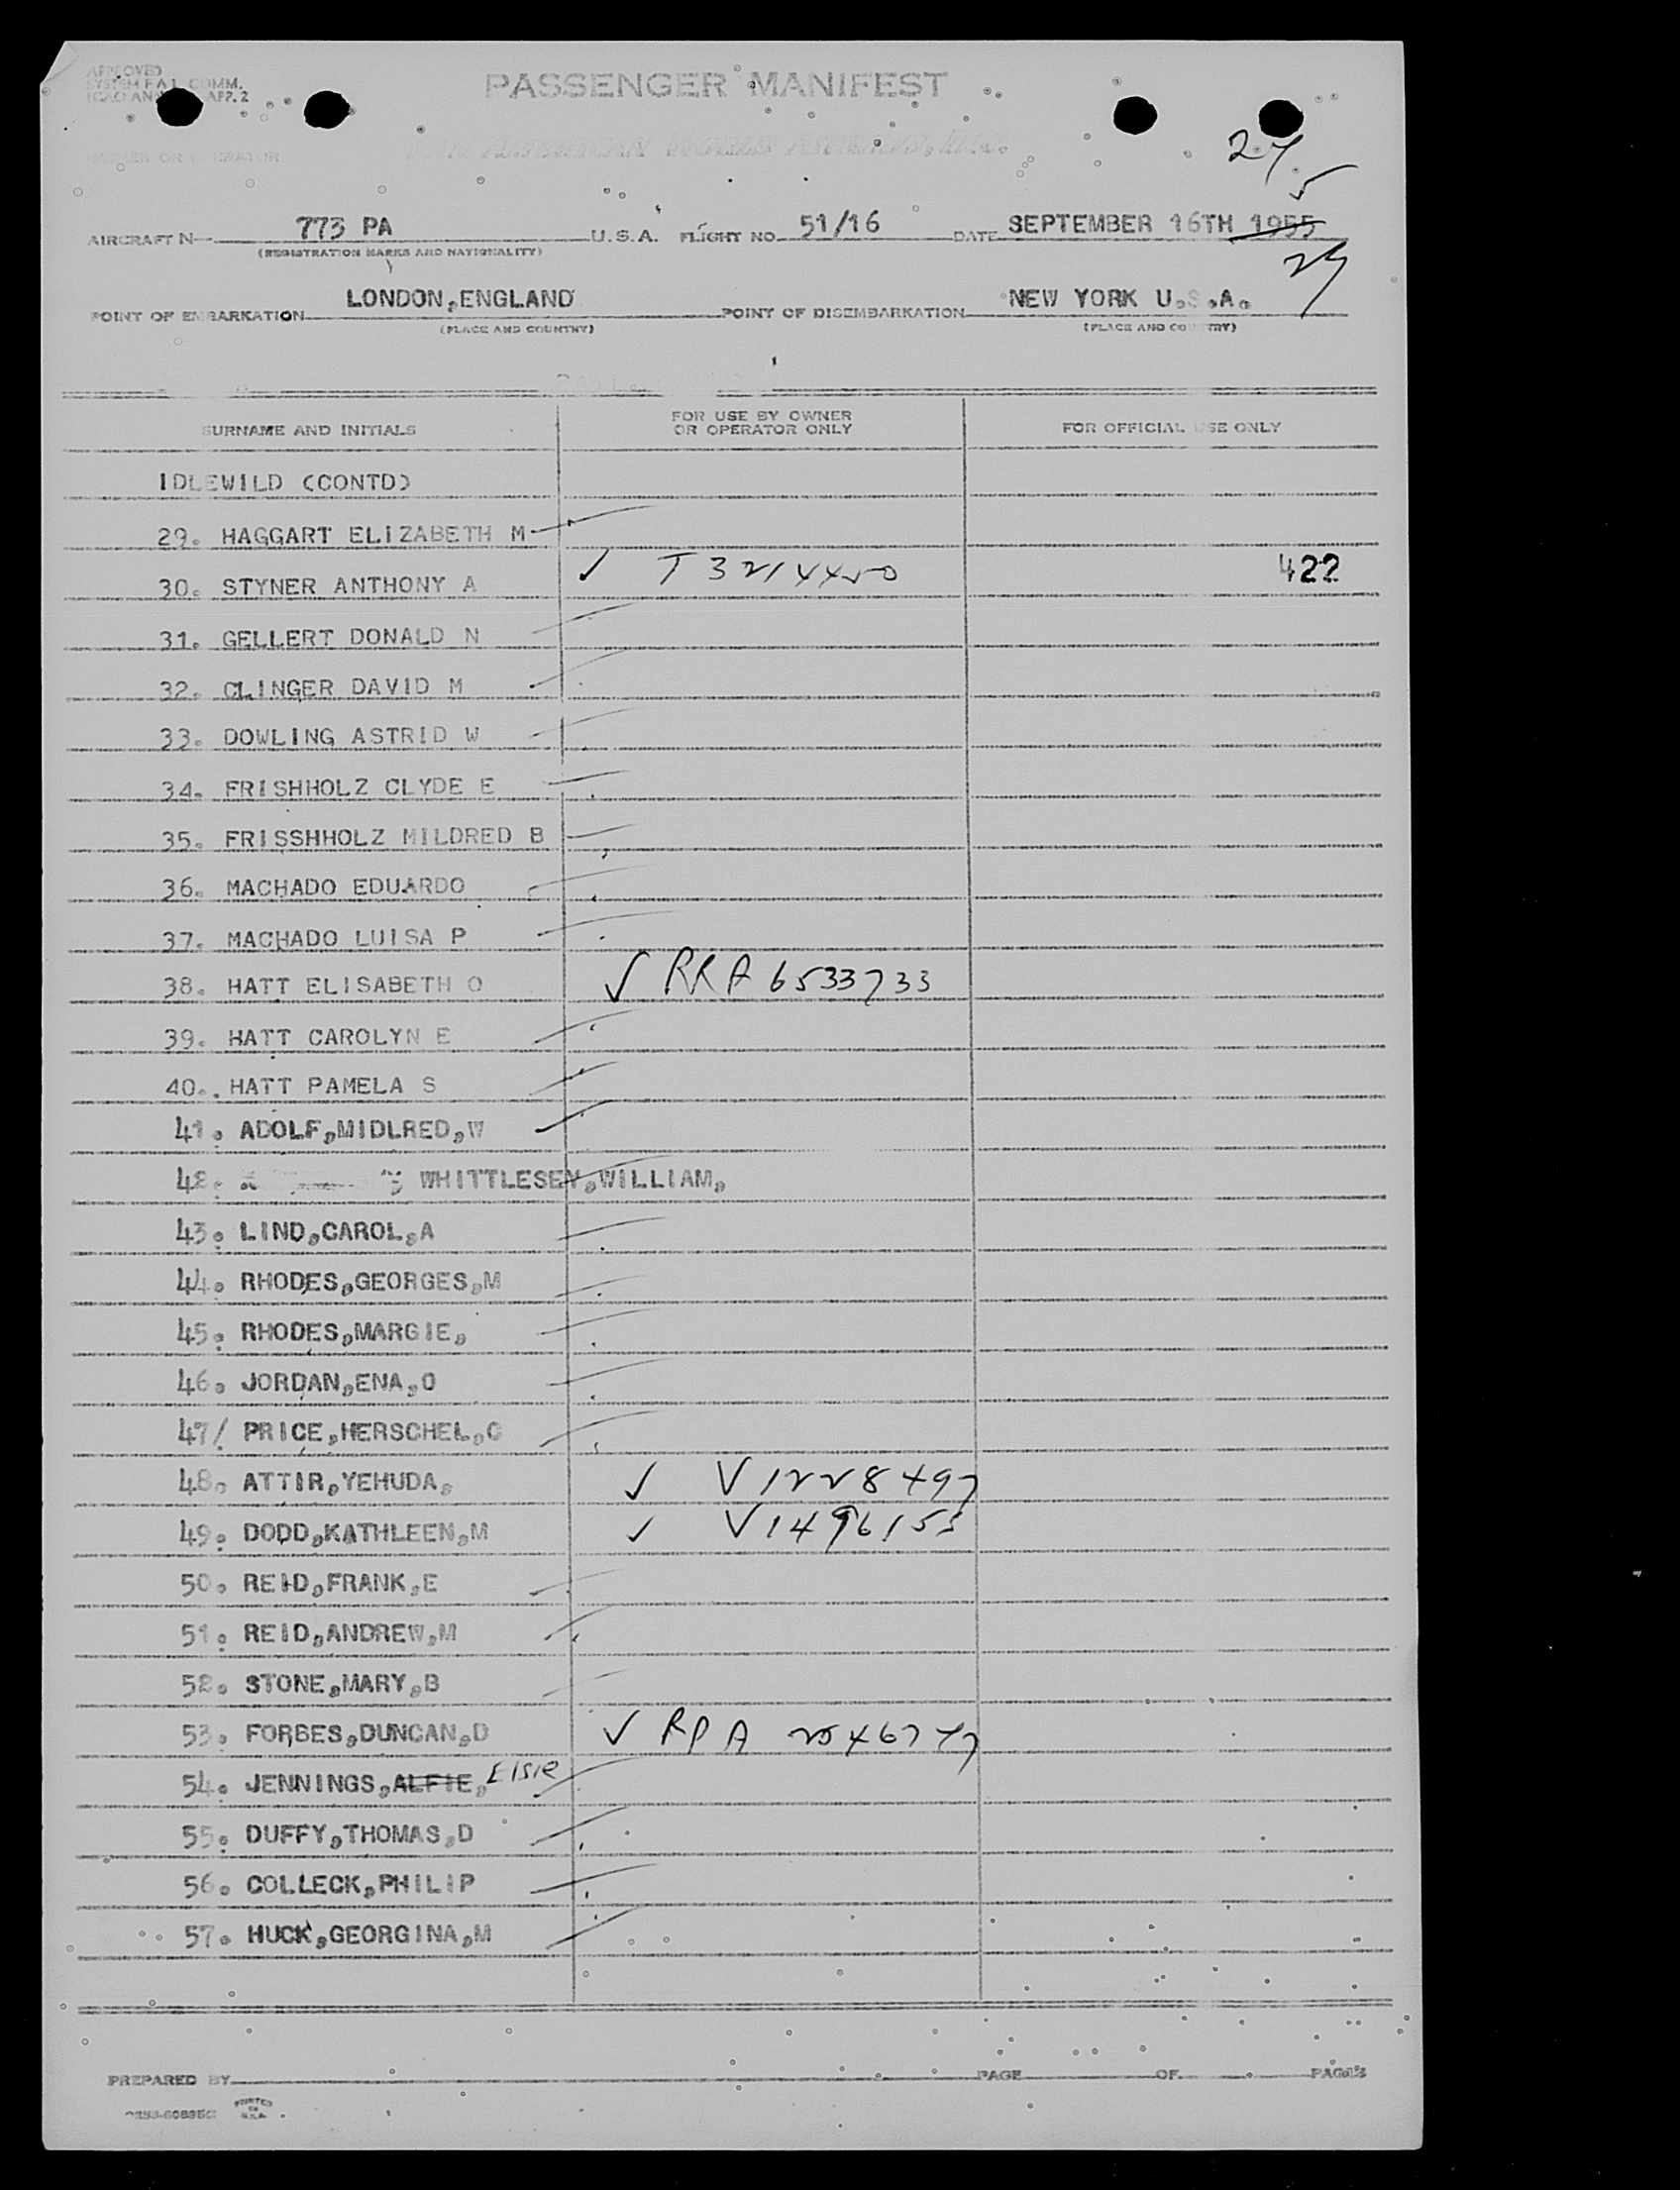 APPROVED
SYSTEM FAL COMM.
ICAO ANN APP. 2
PASSENGER MANIFEST
PAN AMERICAN WORLD AIRWAYS, INC.
OWNER OR OPERATOR
24
5
AIRCRAFT N 773 PA U.S.A. FLIGHT NO. 51/16 DATE SEPTEMBER 16TH 1955
(REGISTRATION MARKS AND NATIONALITY)
29
POINT OF EMBARKATION LONDON,ENGLAND POINT OF DISEMBARKATION NEW YORK U.S.A.
(PLACE AND COUNTRY) (PLACE AND COUNTRY)
SURNAME AND INITIALS FOR USE BY OWNER OR OPERATOR ONLY FOR OFFICIAL USE ONLY
IDLEWILD (CONTD)
29. HAGGART ELIZABETH M
30. STYNER ANTHONY A ✓ T 3214450 422
31. GELLERT DONALD N
32. CLINGER DAVID M
33. DOWLING ASTRID W
34. FRISHHOLZ CLYDE E
35. FRISSHHOLZ MILDRED B
36. MACHADO EDUARDO
37. MACHADO LUISA P
38. HATT ELISABETH O ✓ RRA 6533733
39. HATT CAROLYN E
40.. HATT PAMELA S
41. ADOLF,MIDLRED,W
42. WHITTLESEY,WILLIAM,
43. LIND,CAROL,A
44. RHODES,GEORGES,M
45. RHODES,MARGIE,
46. JORDAN,ENA,O
47/ PRICE,HERSCHEL,C
48. ATTIR,YEHUDA, ✓ V1228497
49. DODD,KATHLEEN,M ✓ V1496155
50. REID,FRANK,E
51. REID,ANDREW,M
52. STONE,MARY,B
53. FORBES,DUNCAN,D ✓
54. JENNINGS,ALFIE, Elsie
55. DUFFY,THOMAS,D
56. COLLECK,PHILIP
57. HUCK,GEORGINA,M
PREPARED BY PAGE OF PAGES
PRINTED IN U.S.A.